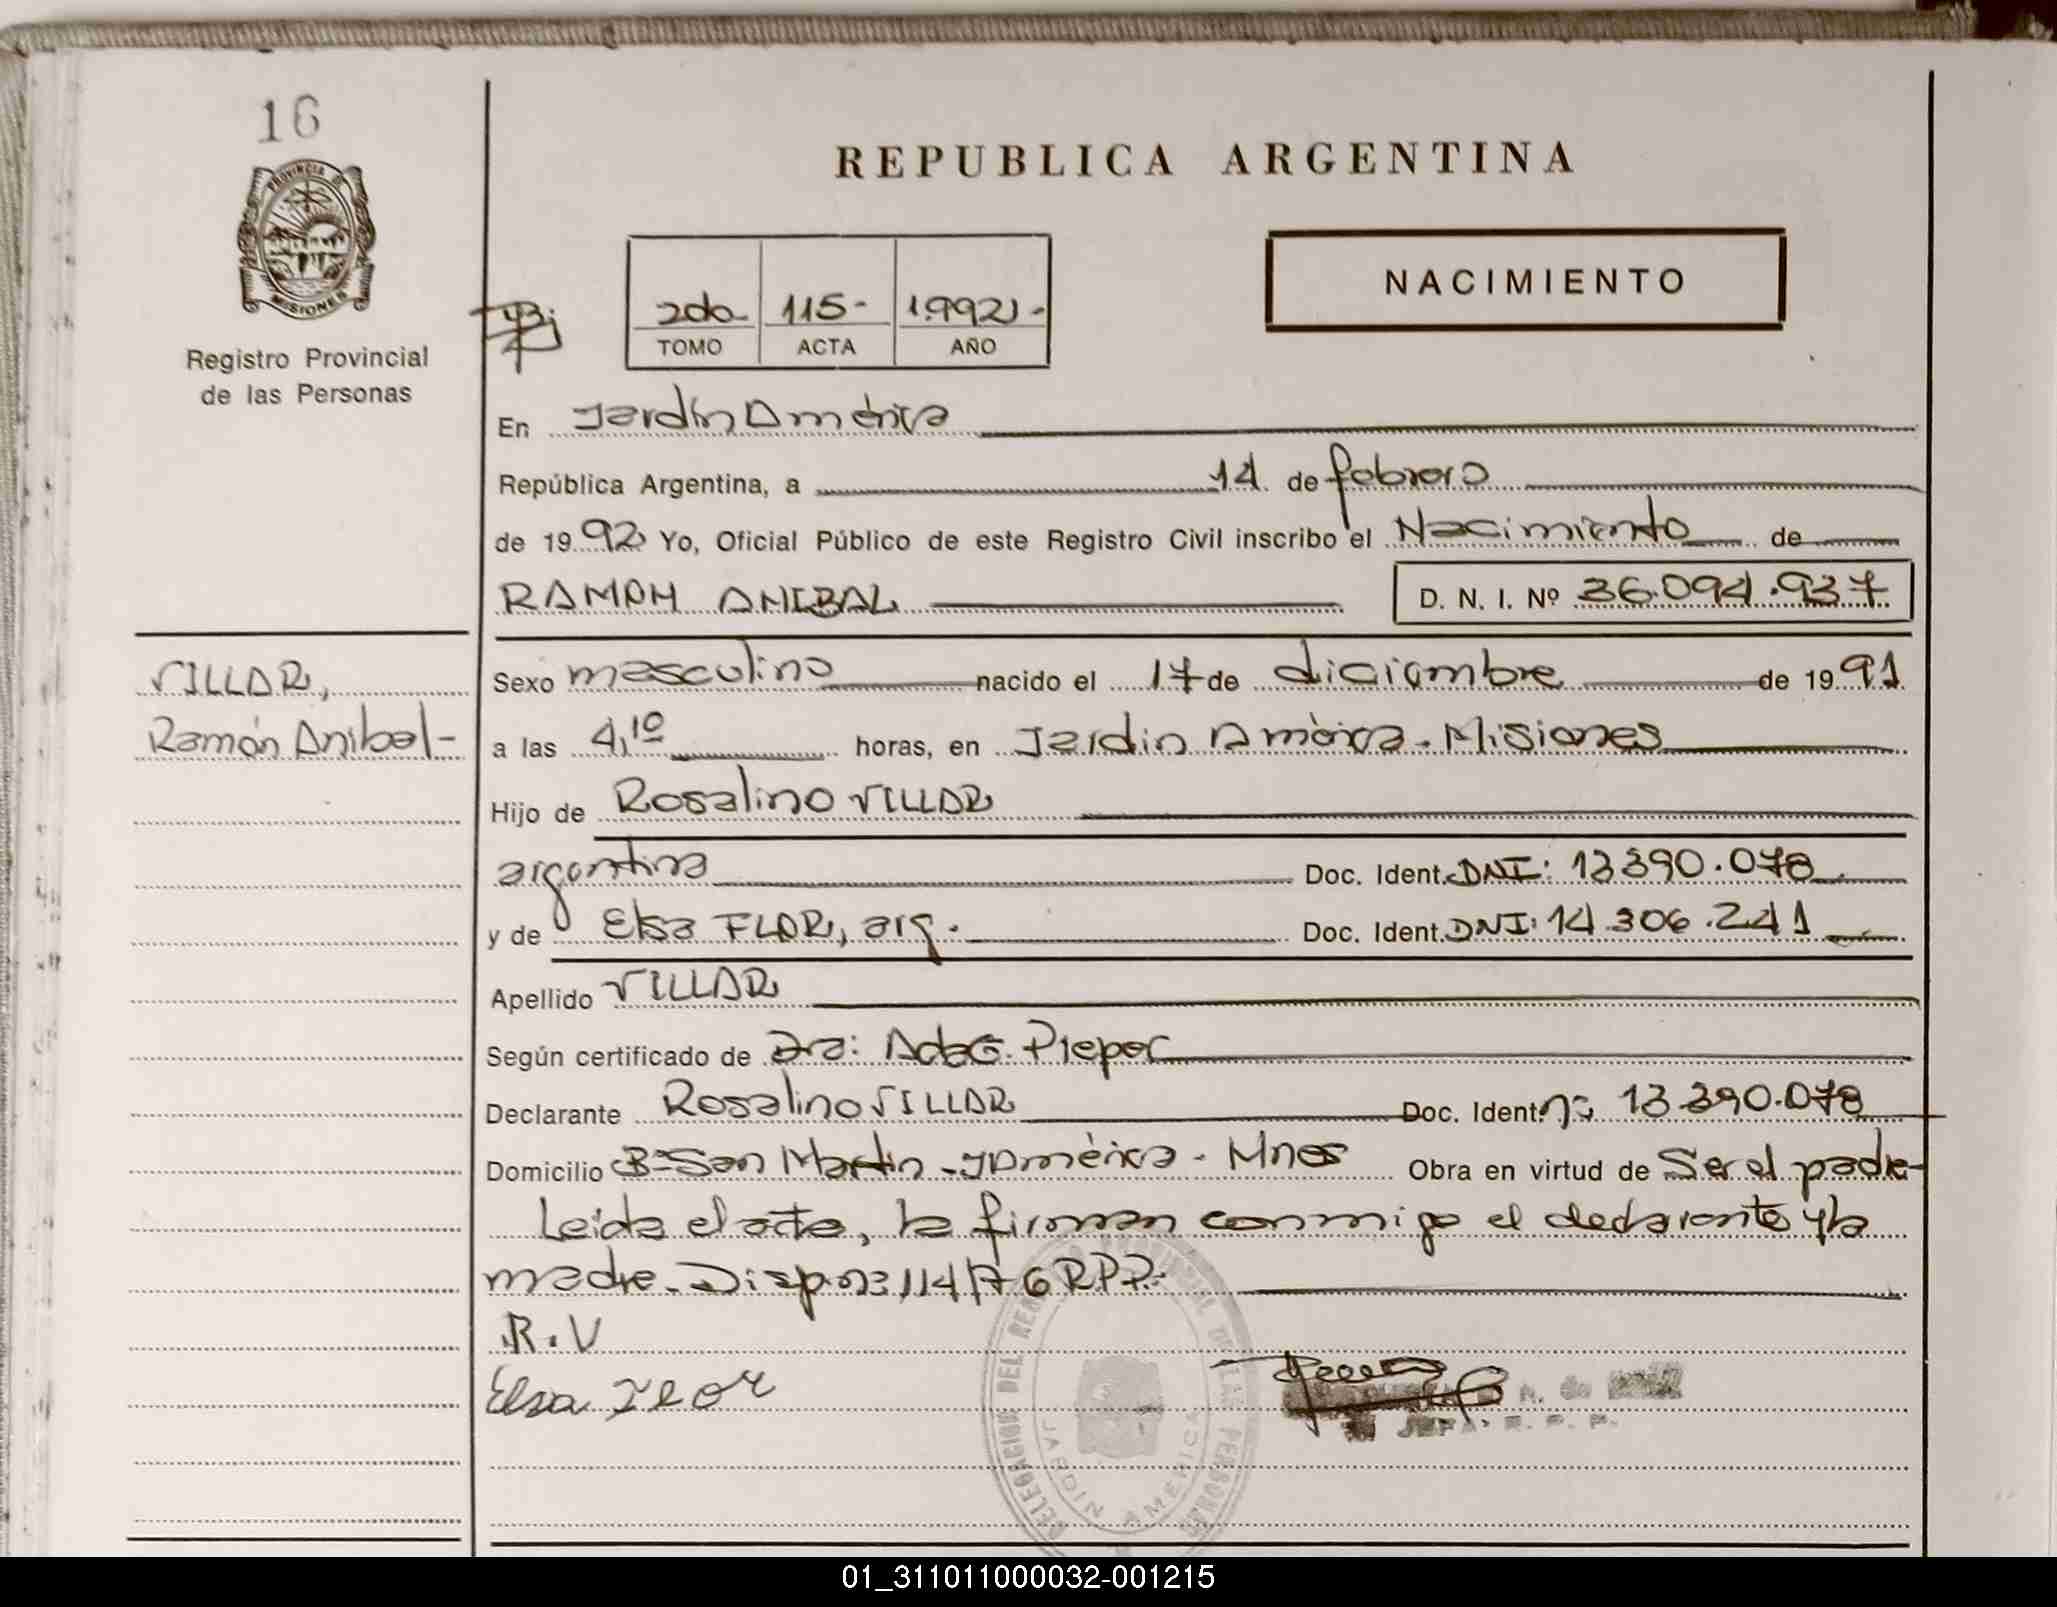 16
PROVINCIA DE
MISIONES
Registro Provincial
de las Personas
REPUBLICA ARGENTINA
NACIMIENTO
2do 115- 1.992)-
TOMO ACTA AÑO
En Jardín América
República Argentina, a 14 de febrero
de 1992 Yo, Oficial Público de este Registro Civil inscribo el Nacimiento de
RAMON ANIBAL D. N. I. Nº 36.094.937
VILLAR,
Ramón Anibal-
Sexo masculino nacido el 17 de diciembre de 1991
a las 4,10 horas, en Jardín América. Misiones
Hijo de Rosalino VILLAR
argentina Doc. Ident. DNI: 13390.078
y de Elsa FLOR, arg. Doc. Ident. DNI: 14.306.241
Apellido VILLAR
Según certificado de Dra: Ada G. Pieper
Declarante Rosalino VILLAR Doc. Ident. nº 13 390.078
Domicilio Bº San Martín - J América - Mnes Obra en virtud de Ser el padre-
Leida el acta, la firman conmigo el declarante y la
madre. Disp. nº 114/76 R.P.P.
R.V
Elsa Flor
JEFA. R. P. P.
DELEGACION DEL REGISTRO PROVINCIAL DE LAS PERSONAS
JARDIN AMERICA
01_311011000032-001215